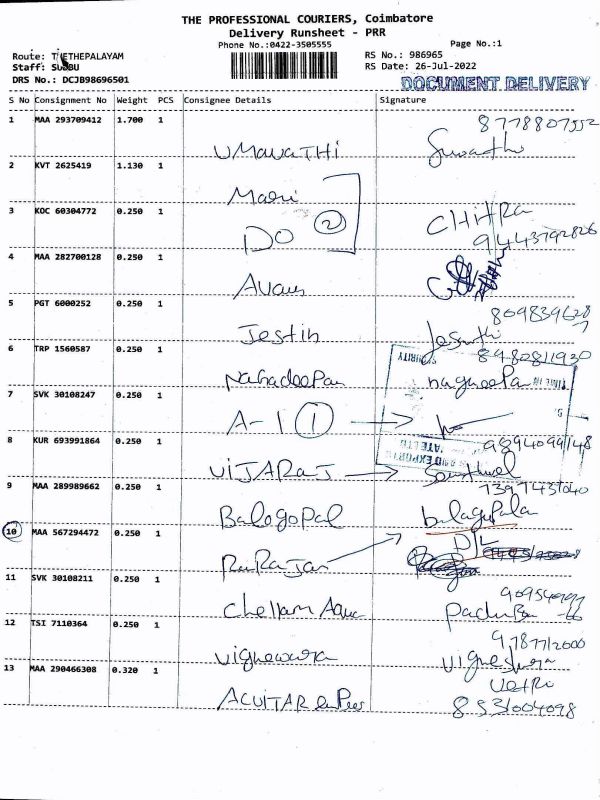 THE PROFESSIONAL COURIERS, Coimbatore
Delivery Runsheet - PRR
Phone No.:0422-3505555
Page No.:1
Route: THETHEPALAYAM
RS No.: 986965
Staff: SUBBU
RS Date: 26-Jul-2022
DRS No.: DCJB98696501
DOCUMENT DELIVERY
S No Consignment No Weight PCS Consignee Details Signature
1 MAA 293709412 1.700 1
8778807552
UMAWATHI
2 KVT 2625419 1.130 1
Mani
3 KOC 60304772 0.250 1
CHitRa
DO 2
9443792826
4 MAA 282700128 0.250 1
5 PGT 6000252 0.250 1
Jestin
6 TRP 1560587 0.250 1
8980811930
Nagadeepan
7 SVK 30108247 0.250 1
A-1 1
8 KUR 693991864 0.250 1
9894099148
VIJARAJ
9 MAA 289989662 0.250 1
7397431040
Balogopal
balagopala
10 MAA 567294472 0.250 1
D/L
11 SVK 30108211 0.250 1
Chellam Aqua
12 TSI 7110364 0.250 1
9787712000
vignewara
vigneshwra
13 MAA 290466308 0.320 1
Vetri
8531004098